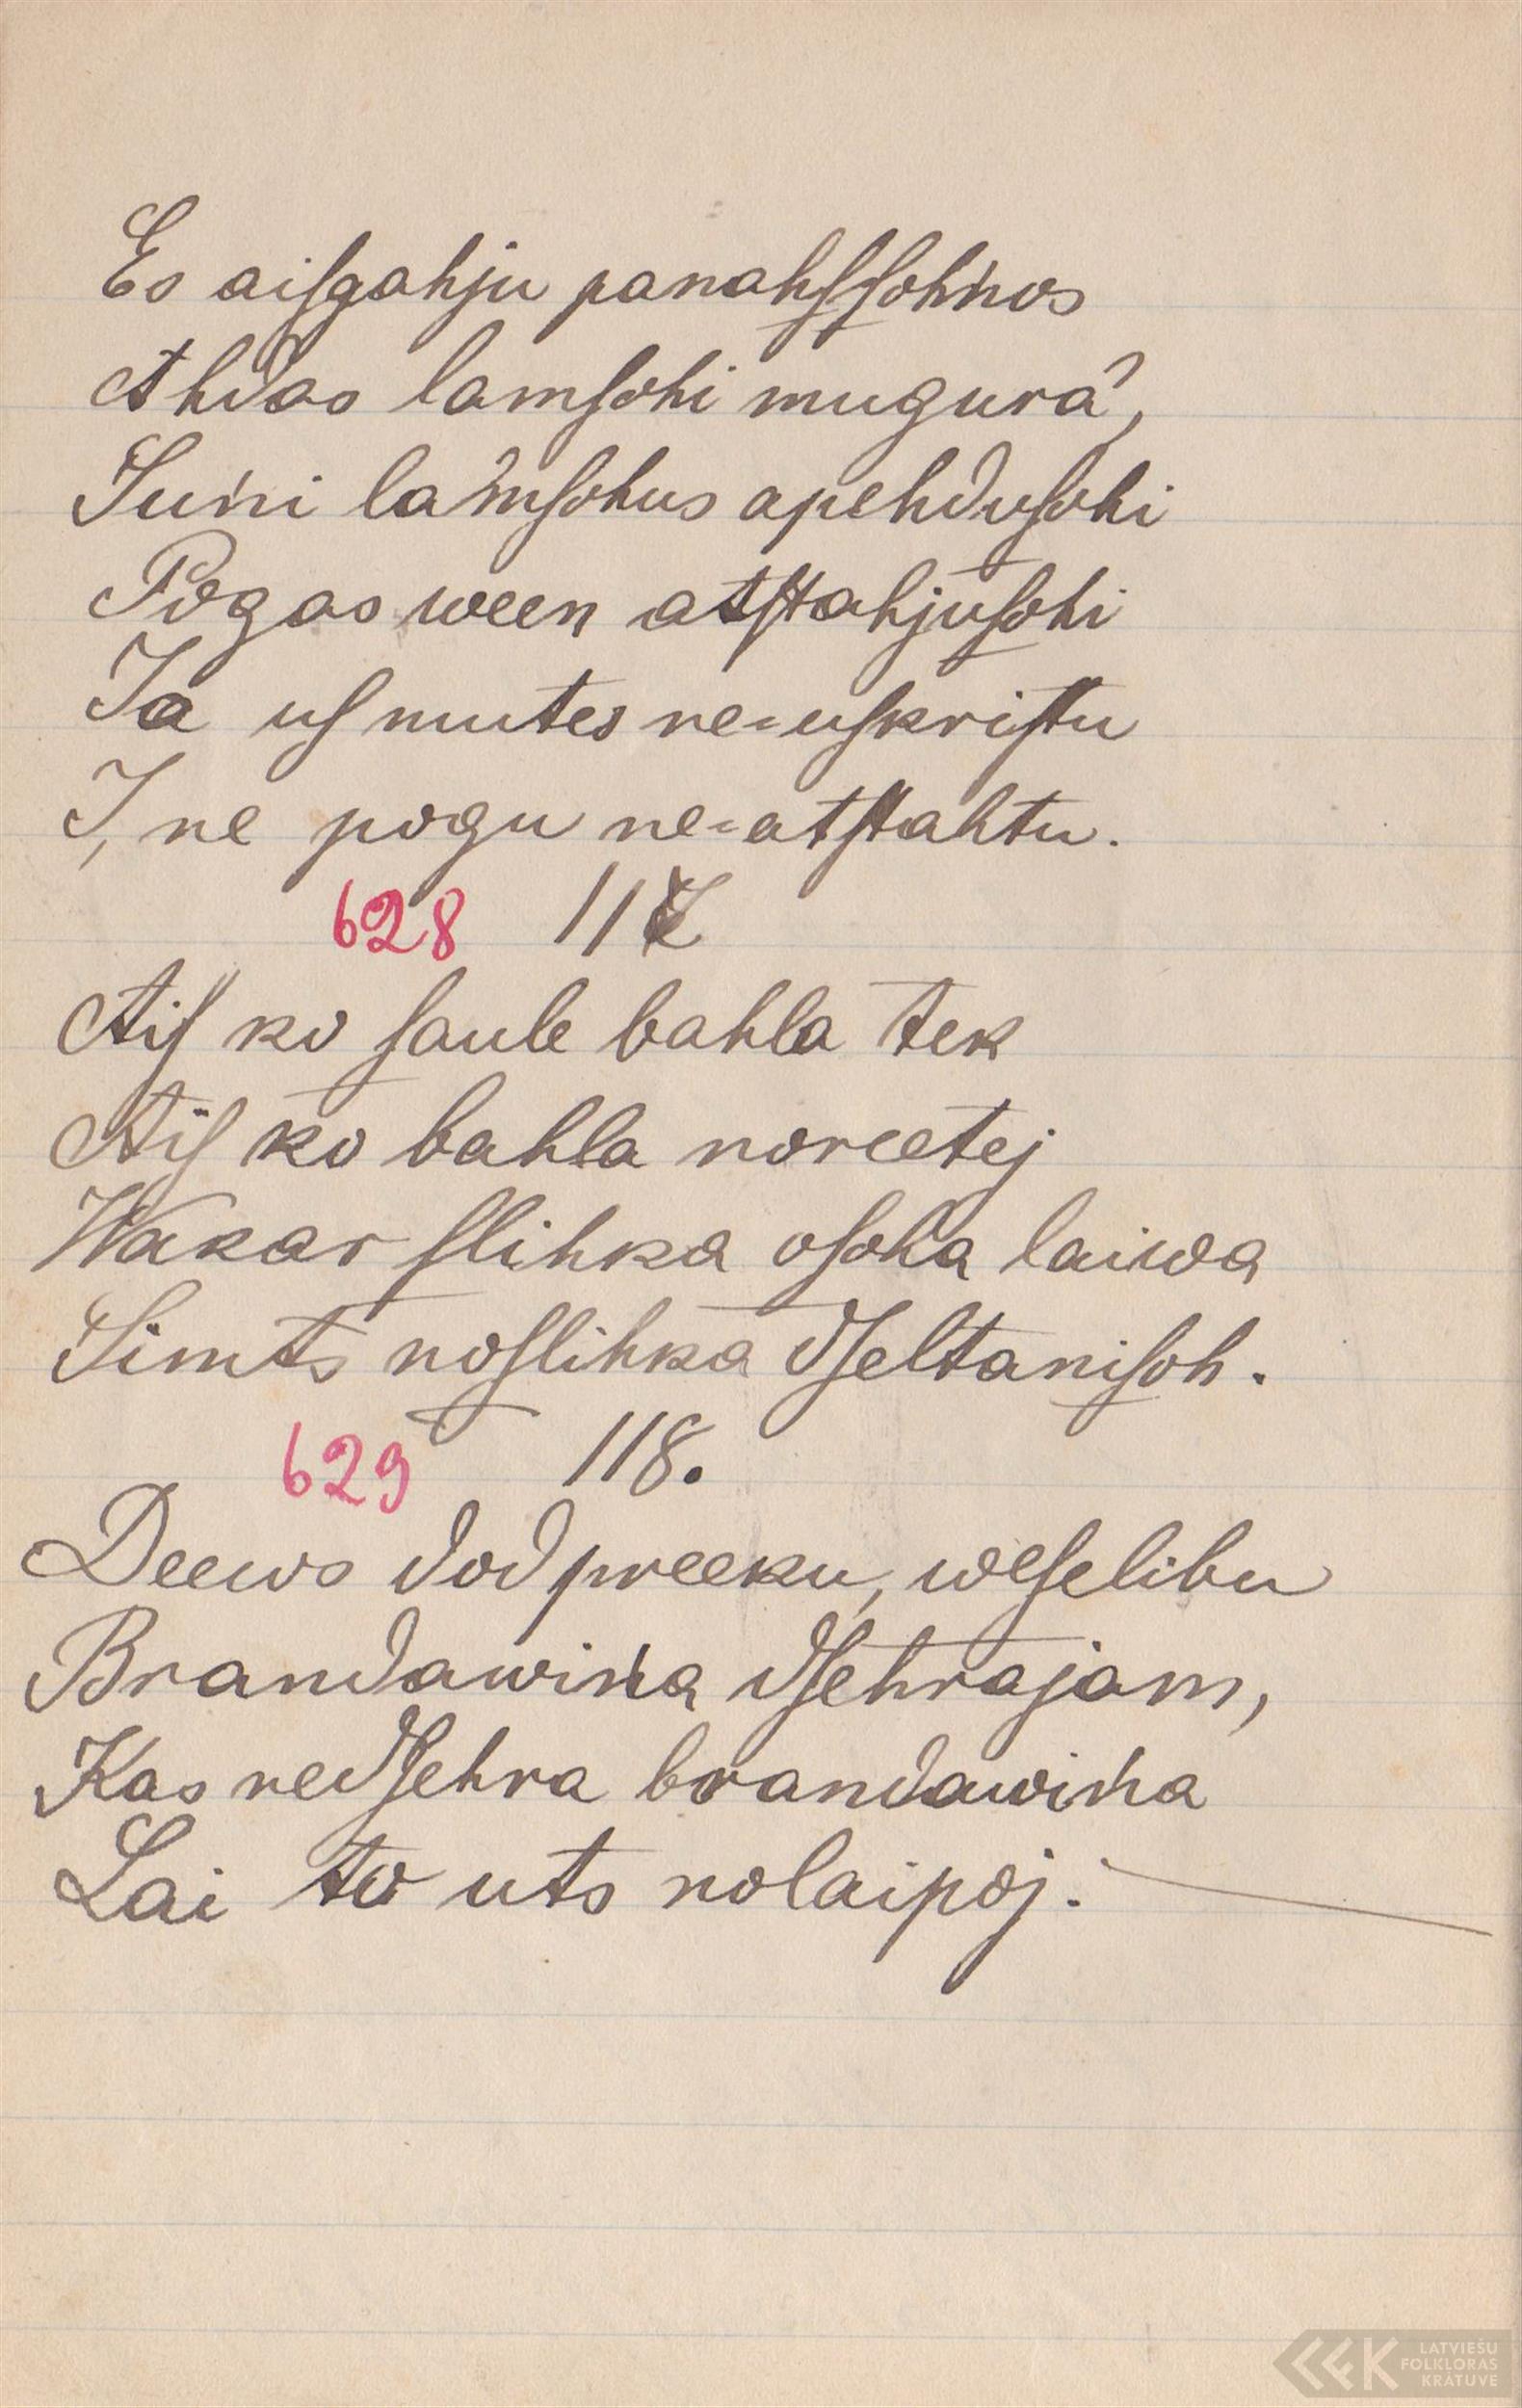 Es aiſgahju panahkſchņos
Ahdas lamſchi mugurâ,
Suņi lamſchus apehduſchi
Pogas ween atſtahjuſchi
Ja uſ mutes ne=uſkriſtu
I, ne pogu ne=atſtahtu.
628 117
Aiſ ko ſaule bahla tek
Aiſ ko bahla noreetej
Wakar ſlihka oſcha laiwa
Simts noſlihka dſeltaniſch.
629 118.
Deews dod preeku, weſelibu
Brandawiņa dſehrajam,
Kas nedſehra brandawiņa
Lai to uts nolaipoj.
LATVIEŠU
FOLKLORAS
KRĀTUVE